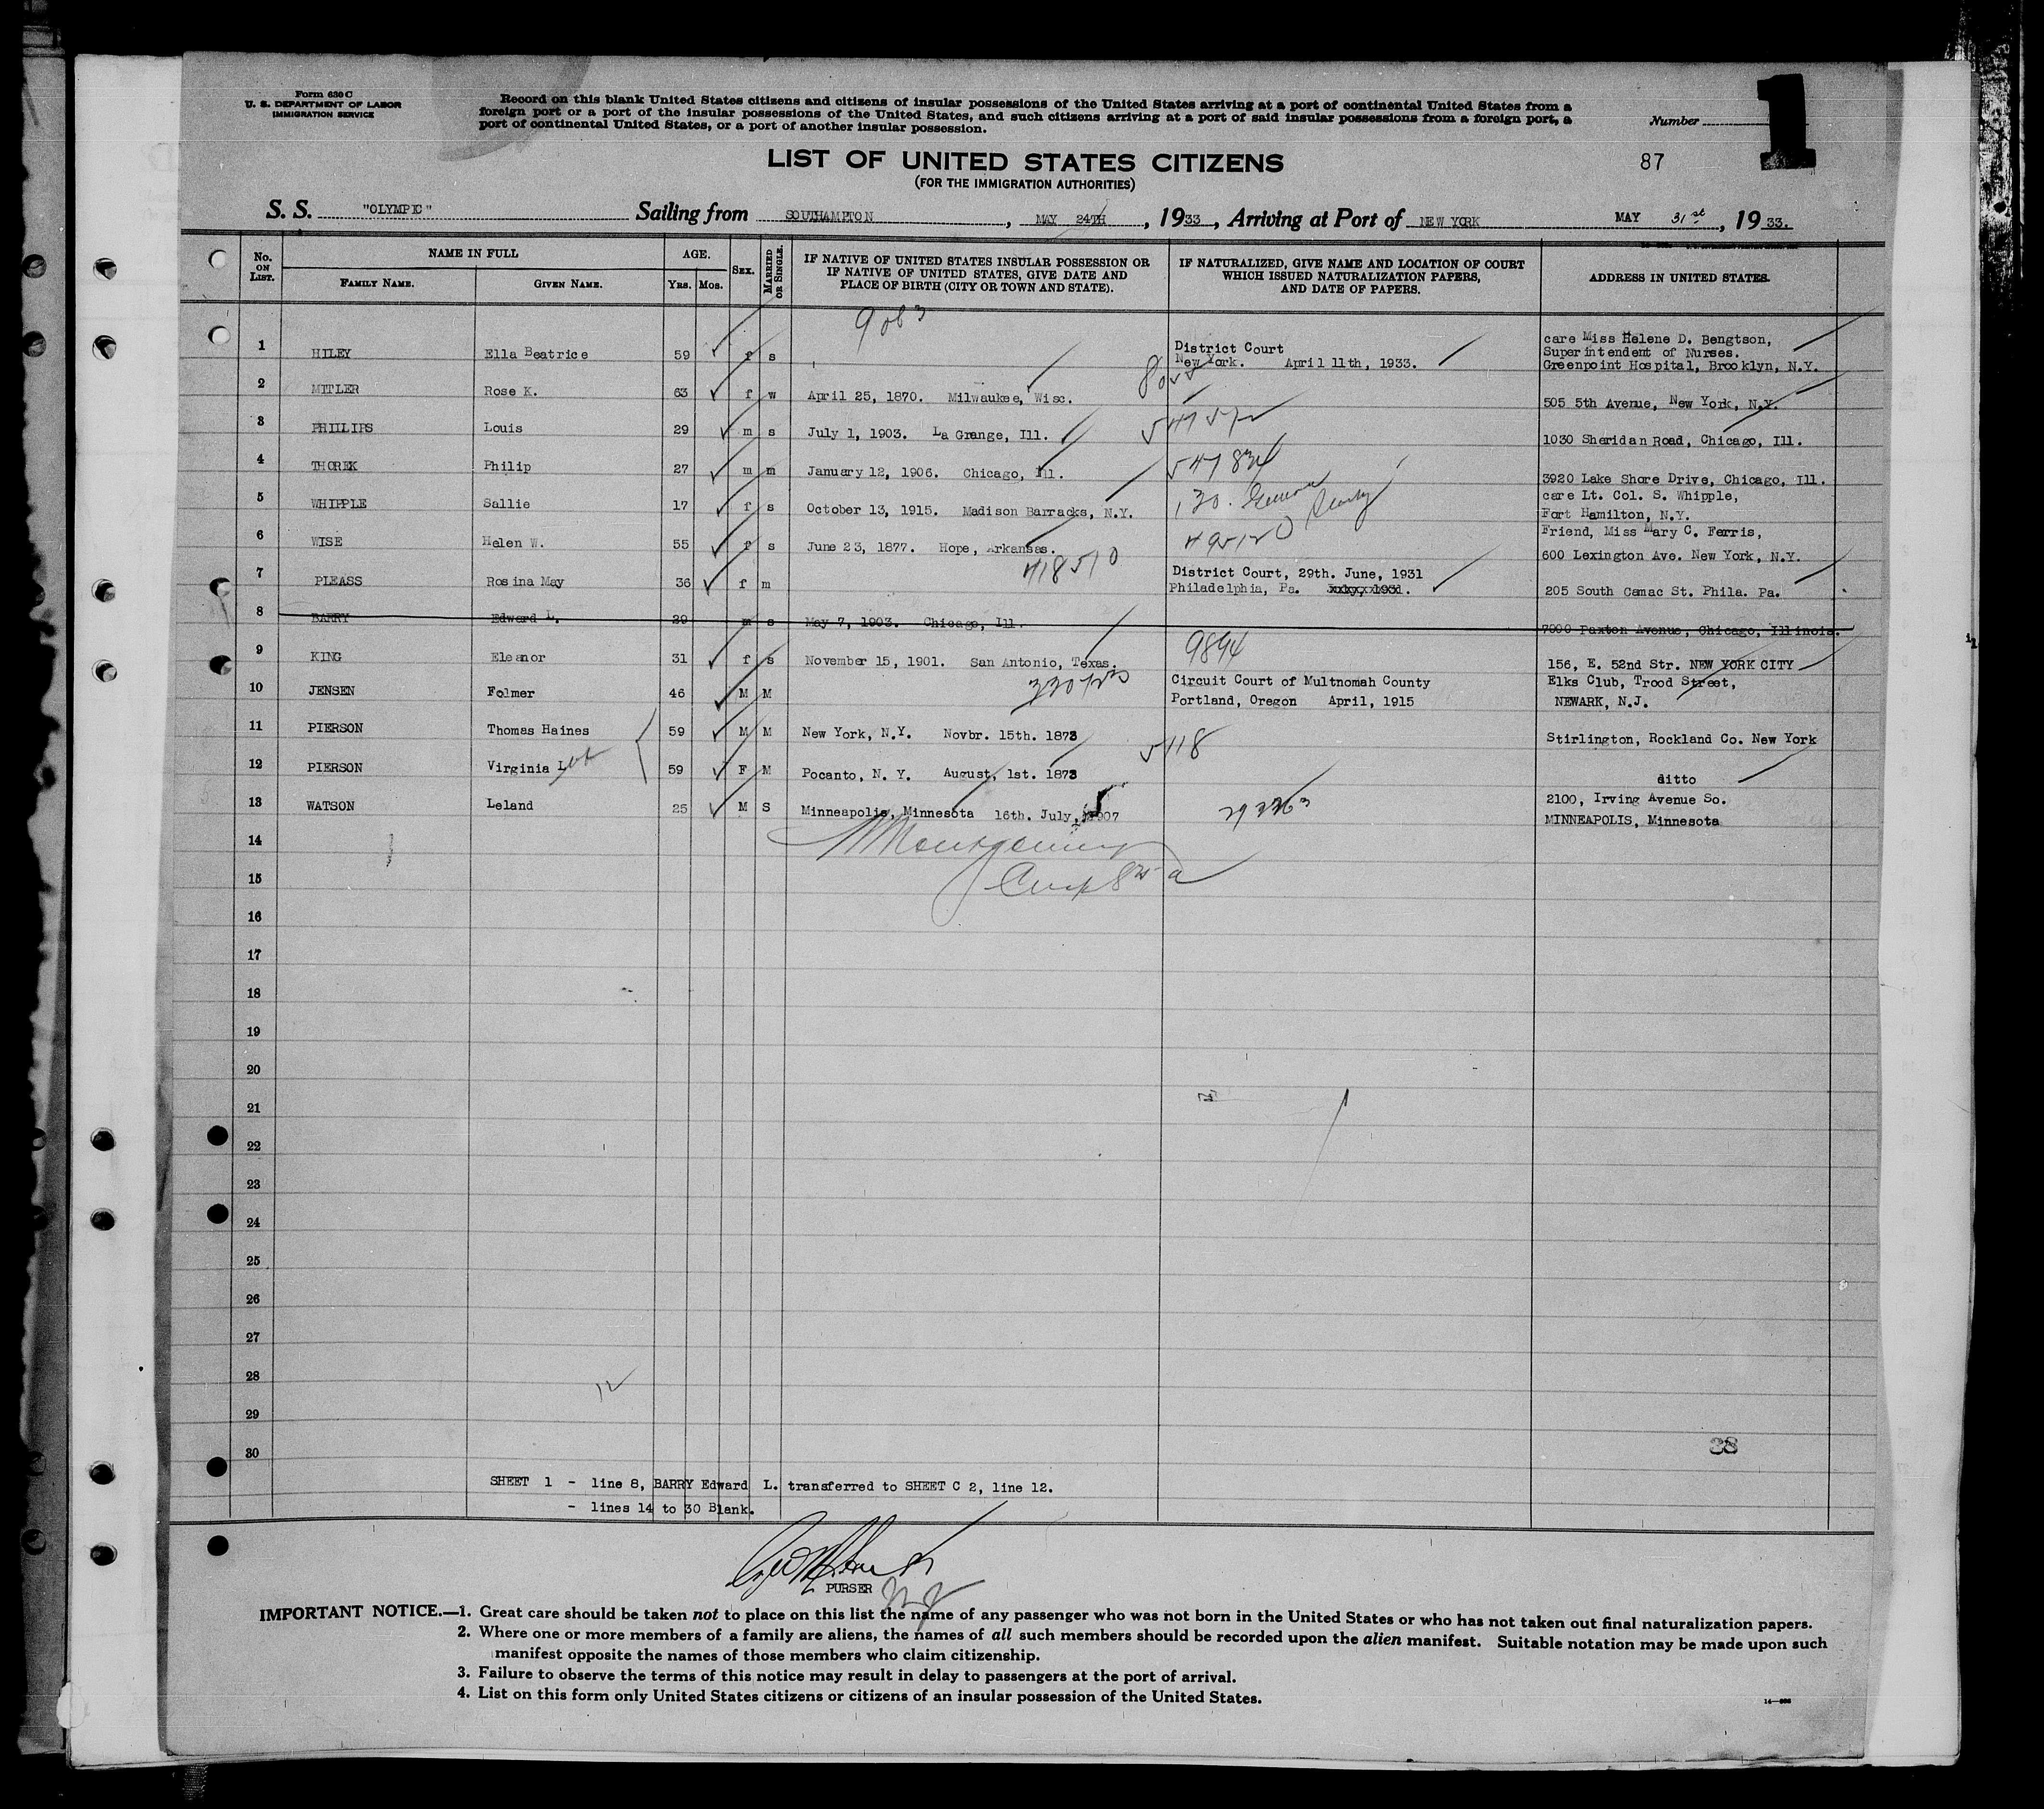 Form 630 C
U. S. DEPARTMENT OF LABOR
IMMIGRATION SERVICE
Record on this blank United States citizens and citizens of insular possessions of the United States arriving at a port of continental United States from a
foreign port or a port of the insular possessions of the United States, and such citizens arriving at a port of said insular possessions from a foreign port, a
port of continental United States, or a port of another insular possession.
Number 1
LIST OF UNITED STATES CITIZENS
87
(FOR THE IMMIGRATION AUTHORITIES)
S. S. "OLYMPIC" Sailing from SOUTHAMPTON, MAY 24TH, 1933, Arriving at Port of NEW YORK MAY 31st, 1933.
No. ON LIST. NAME IN FULL AGE. SEX. MARRIED OR SINGLE. IF NATIVE OF UNITED STATES INSULAR POSSESSION OR IF NATIVE OF UNITED STATES, GIVE DATE AND PLACE OF BIRTH (CITY OR TOWN AND STATE). IF NATURALIZED, GIVE NAME AND LOCATION OF COURT WHICH ISSUED NATURALIZATION PAPERS, AND DATE OF PAPERS. ADDRESS IN UNITED STATES.
FAMILY NAME. GIVEN NAME. Yrs. Mos.
9083
1 HILEY Ella Beatrice 59 f s District Court New York. April 11th, 1933. care Miss Helene D. Bengtson, Superintendent of Nurses. Greenpoint Hospital, Brooklyn, N.Y.
2 MITLER Rose K. 63 f w April 25, 1870. Milwaukee, Wisc. 505 5th Avenue, New York, N.Y.
3 PHILLIPS Louis 29 m s July 1, 1903. La Grange, Ill. 1030 Sheridan Road, Chicago, Ill.
4 THOREK Philip 27 m m January 12, 1906. Chicago, Ill. 547834 3920 Lake Shore Drive, Chicago, Ill.
5 WHIPPLE Sallie 17 f s October 13, 1915. Madison Barracks, N.Y. care Lt. Col. S. Whipple, Fort Hamilton, N.Y.
6 WISE Helen W. 55 f s June 23, 1877. Hope, Arkansas. Friend, Miss Mary C. Ferris, 600 Lexington Ave. New York, N.Y.
418510
7 PLEASS Rosina May 36 f m District Court, 29th. June, 1931 Philadelphia, Pa. 1931. 205 South Camac St. Phila. Pa.
8 BARRY Edward L. 29 m s May 7, 1903. Chicago, Ill. 7000 Paxton Avenue, Chicago, Illinois.
9 KING Eleanor 31 f s November 15, 1901. San Antonio, Texas. 9894 156, E. 52nd Str. NEW YORK CITY
10 JENSEN Folmer 46 M M Circuit Court of Multnomah County Portland, Oregon April, 1915 Elks Club, Trood Street, NEWARK, N.J.
11 PIERSON Thomas Haines 59 M M New York, N.Y. Novbr. 15th. 1873 5118 Stirlington, Rockland Co. New York
12 PIERSON Virginia 59 F M Pocanto, N. Y. August, 1st. 1873 ditto
13 WATSON Leland 25 M S Minneapolis, Minnesota 16th. July, 1907 2100, Irving Avenue So. MINNEAPOLIS, Minnesota
14
15
16
17
18
19
20
21
22
23
24
25
26
27
28
29
30
SHEET 1 - line 8, BARRY Edward L. transferred to SHEET C 2, line 12.
- lines 14 to 30 Blank.
PURSER
IMPORTANT NOTICE.—1. Great care should be taken not to place on this list the name of any passenger who was not born in the United States or who has not taken out final naturalization papers.
2. Where one or more members of a family are aliens, the names of all such members should be recorded upon the alien manifest. Suitable notation may be made upon such
manifest opposite the names of those members who claim citizenship.
3. Failure to observe the terms of this notice may result in delay to passengers at the port of arrival.
4. List on this form only United States citizens or citizens of an insular possession of the United States.